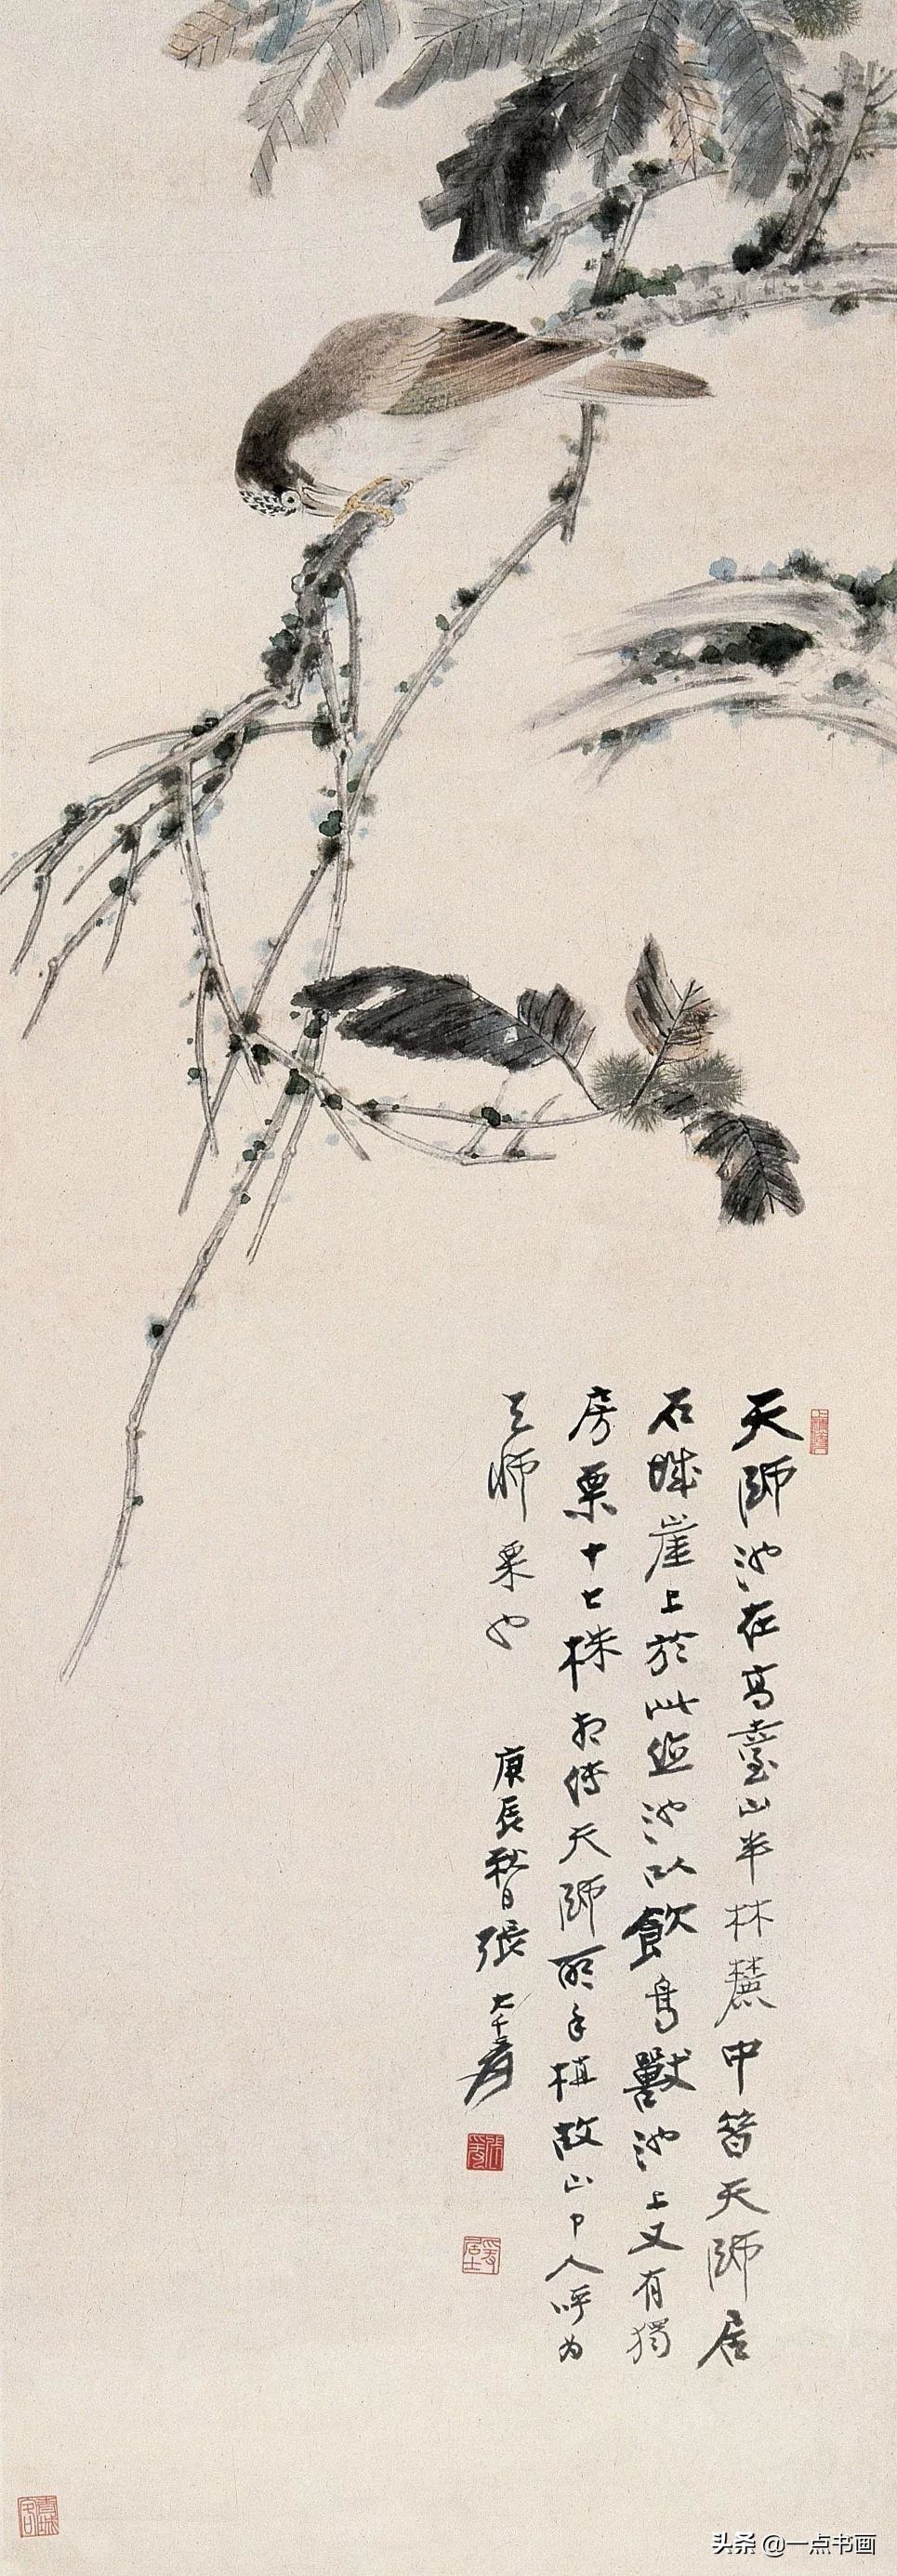 天師池在高臺山半林麓中昔天師居
石城崖上於此池以飲鳥獸池上又有獨
房栗十七株相傳天師所手植故山中人呼为
天師栗也 庚辰秋日張大千爰
張爰
青城客
头条 @一点书画